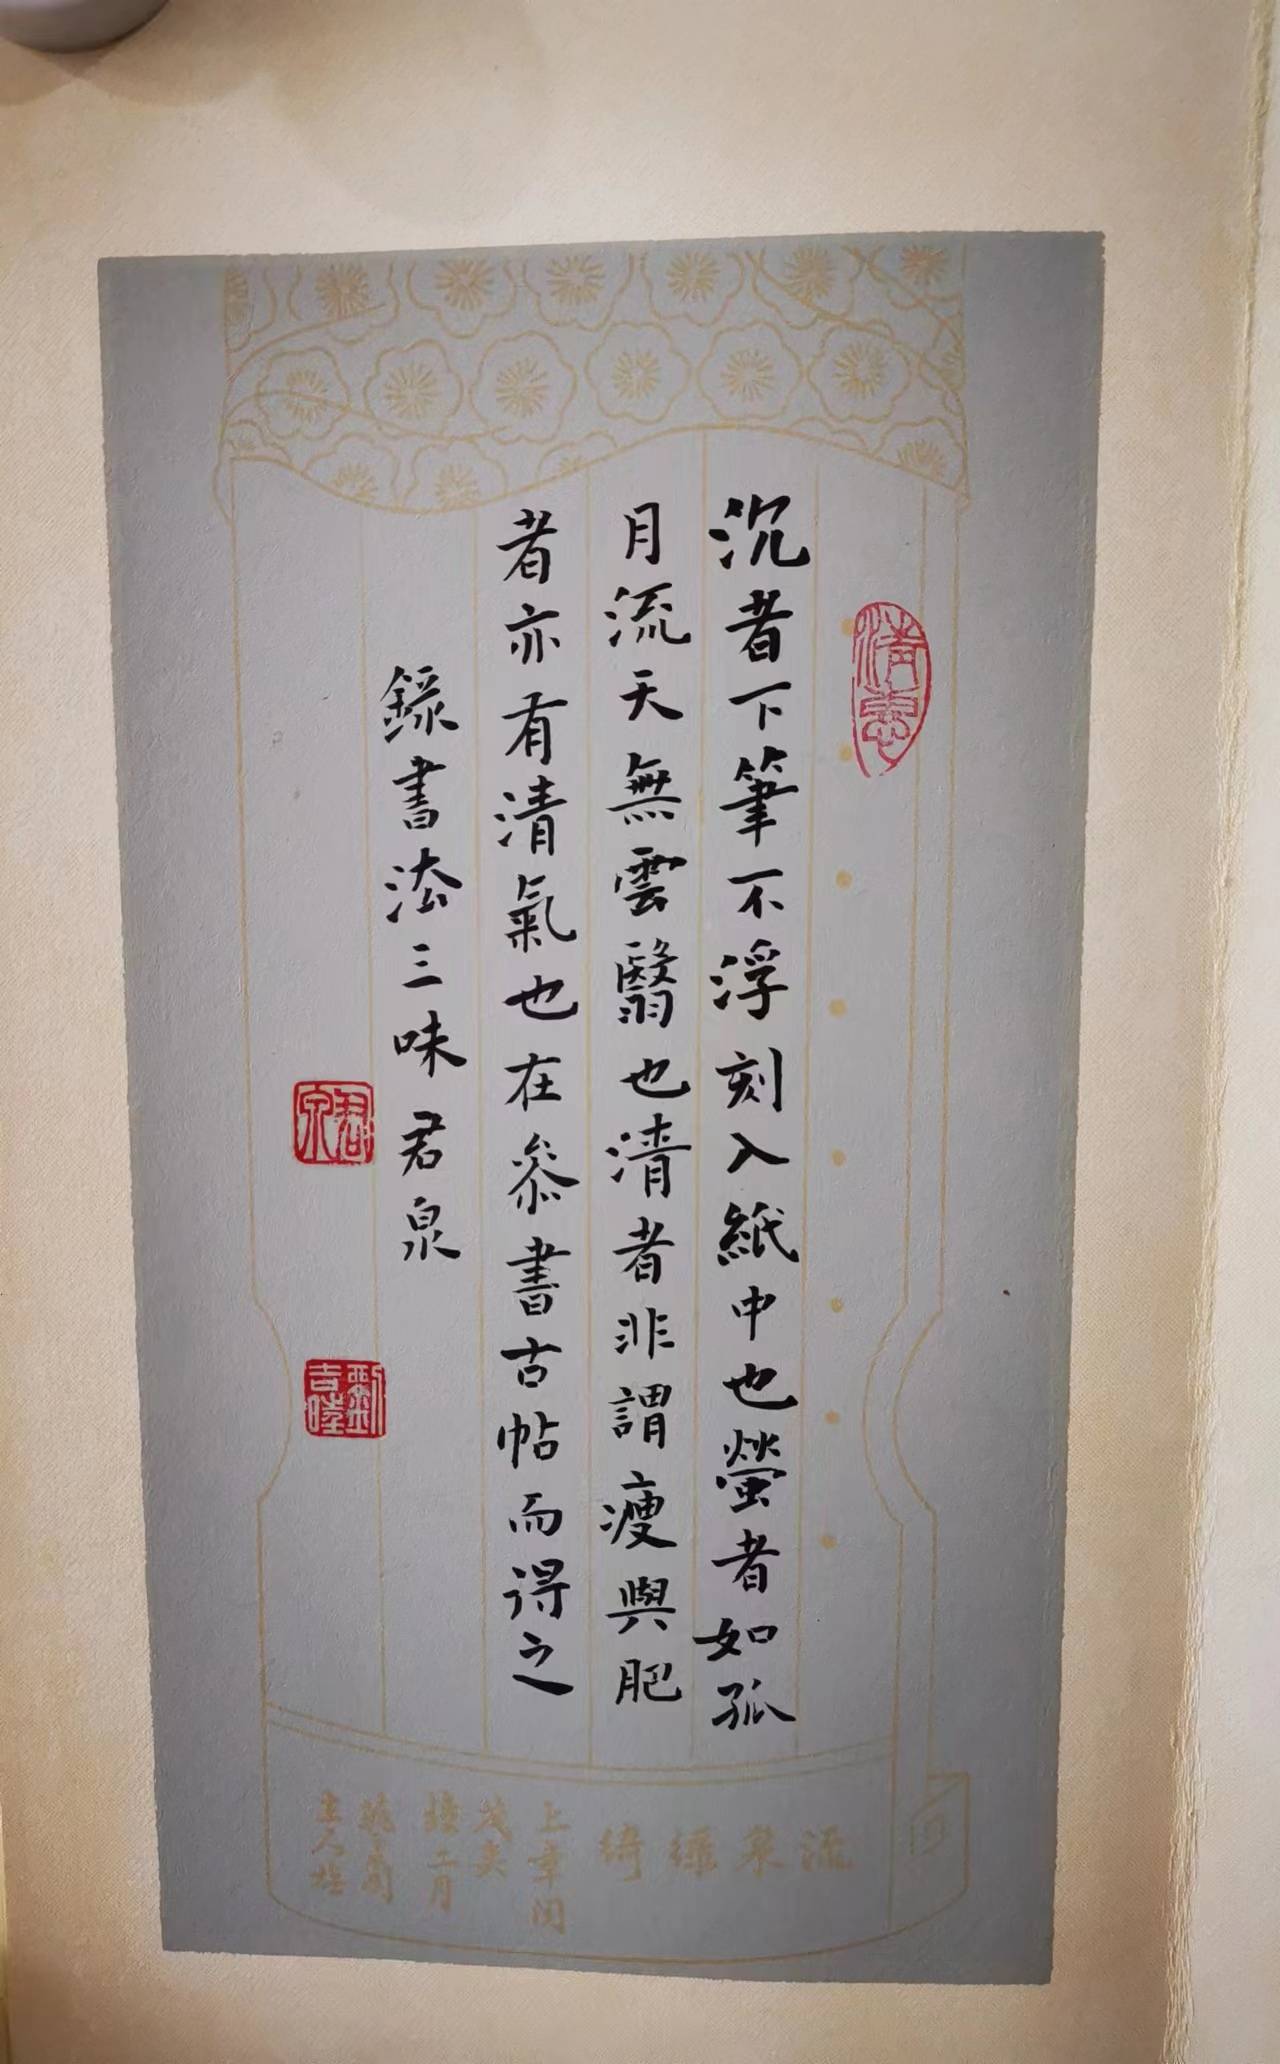 沉者下筆不浮刻入紙中也螢者如孤
月流天無雲翳也清者非謂瘦與肥
者亦有清氣也在叅書古帖而得之
錄書法三味君泉
君泉
劉
流
上章閏
茂
二月
主人